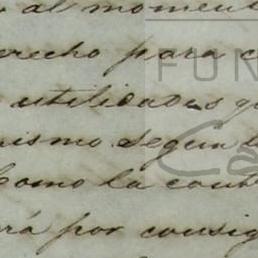 al momento
derecho para c
utilidades q
mismo segun l
Como la cont
rá por consig
FUN
Ca